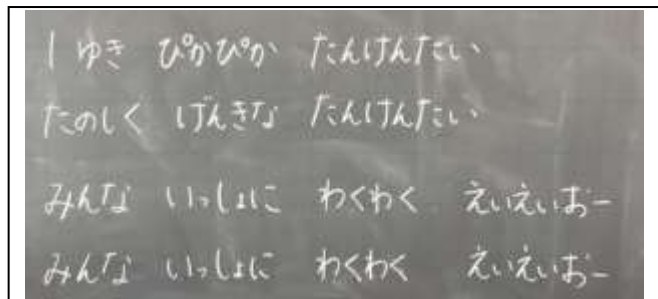 1 ゆき ぴかぴか たんけんたい
たのしく げんきな たんけんたい
みんな いっしょに わくわく えいえいおー
みんな いっしょに わくわく えいえいおー